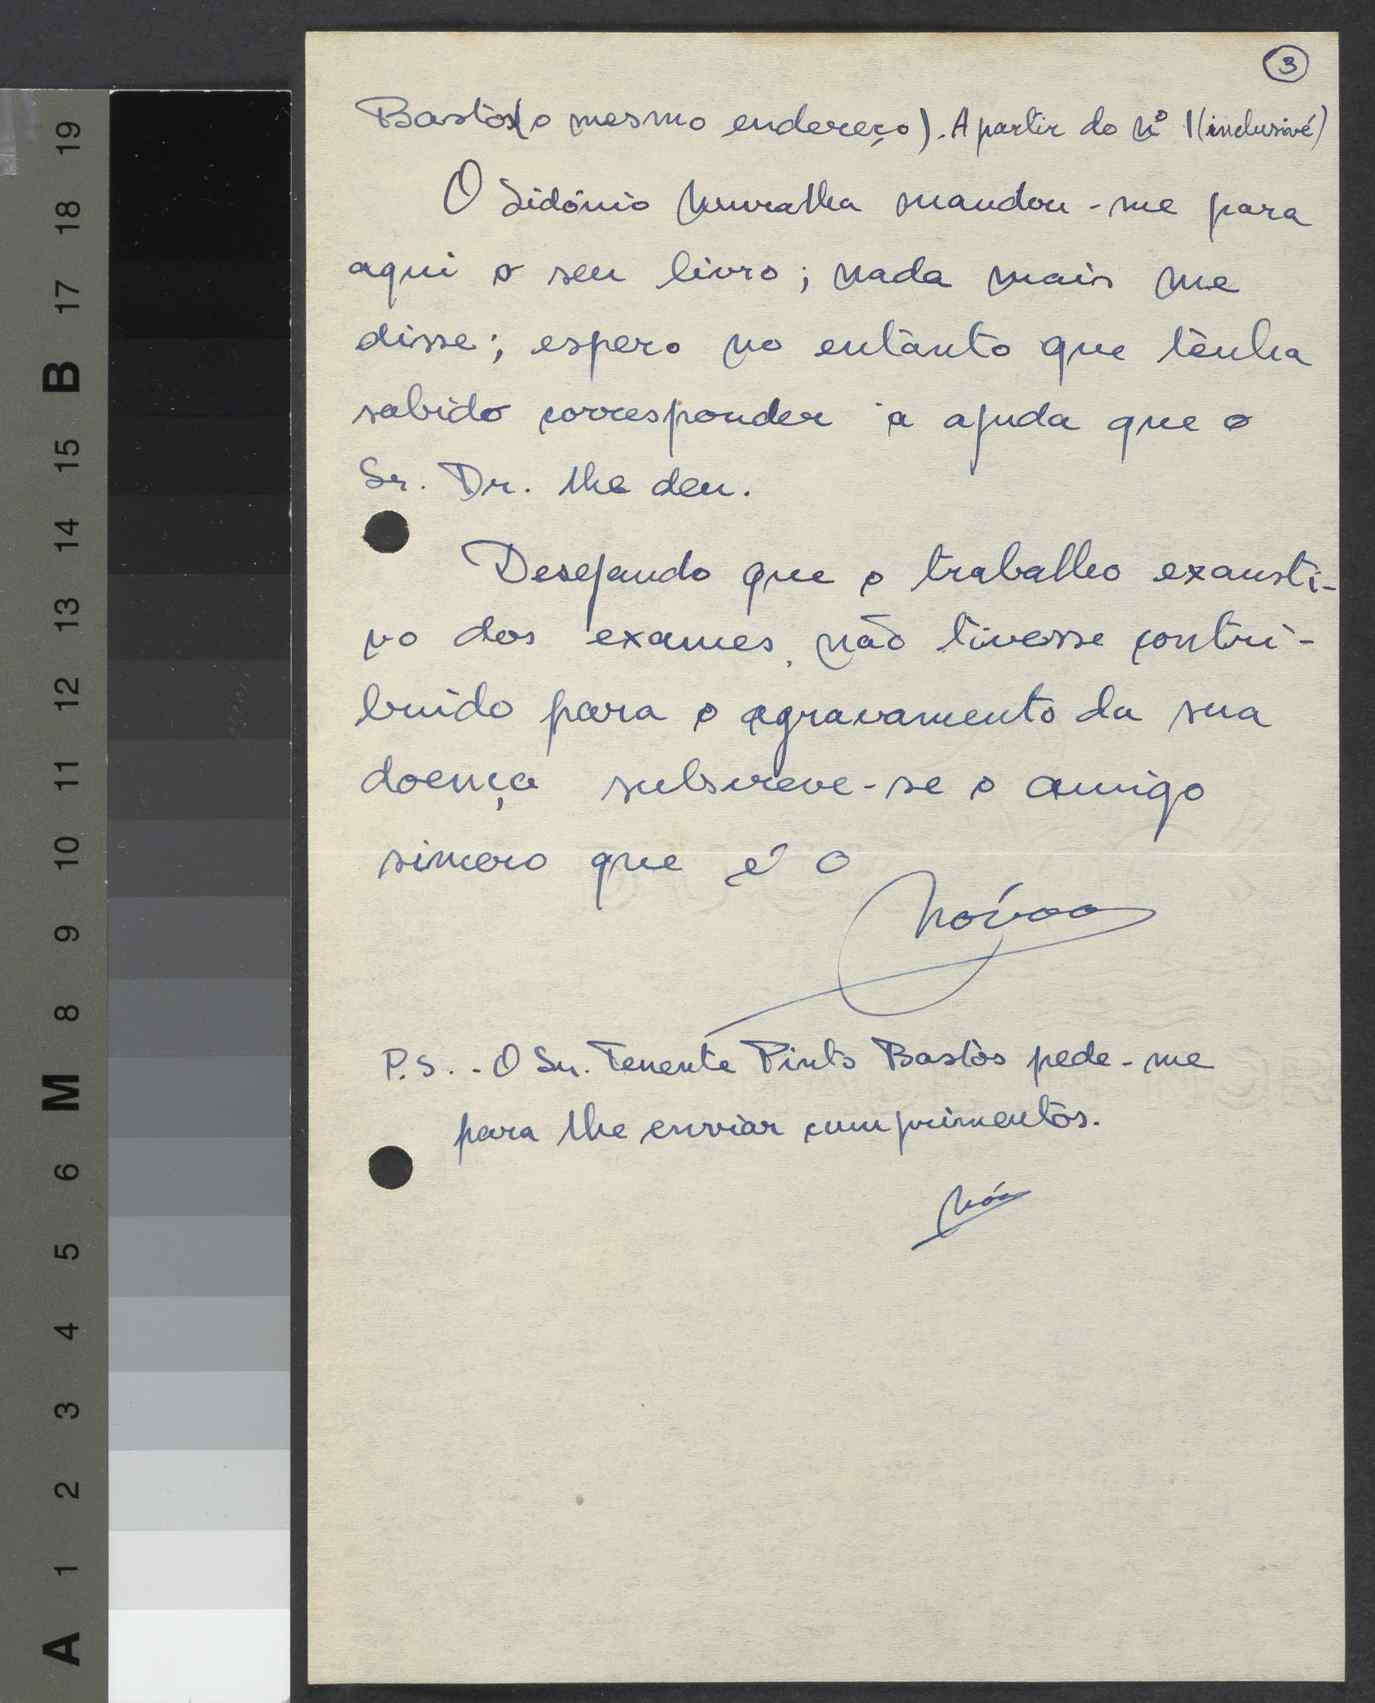 3
Bastos (o mesmo endereço). A partir do nº 1 (inclusivé)
O Sidónio Muralha mandou-me para
aqui o seu livro; nada mais me
disse; espero no entanto que tenha
sabido corresponder à ajuda que o
Sr. Dr. lhe deu.
Desejando que o trabalho exausti-
vo dos exames, não tivesse contri-
buido para o agravamento da sua
doença subscreve-se o amigo
sincero que é o
Nóvoa
P.S. - O Sr. Tenente Pinto Bastos pede-me
para lhe enviar cumprimentos.
A 1 2 3 4 5 6 M 8 9 10 11 12 13 14 15 B 17 18 19